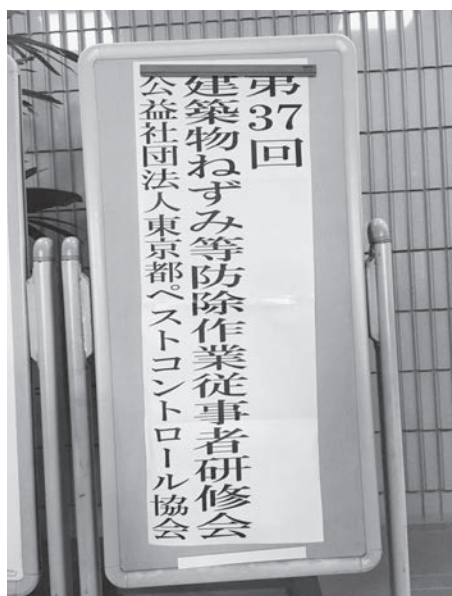 第37回
建築物ねずみ等防除作業従事者研修会
公益社団法人東京都ペストコントロール協会